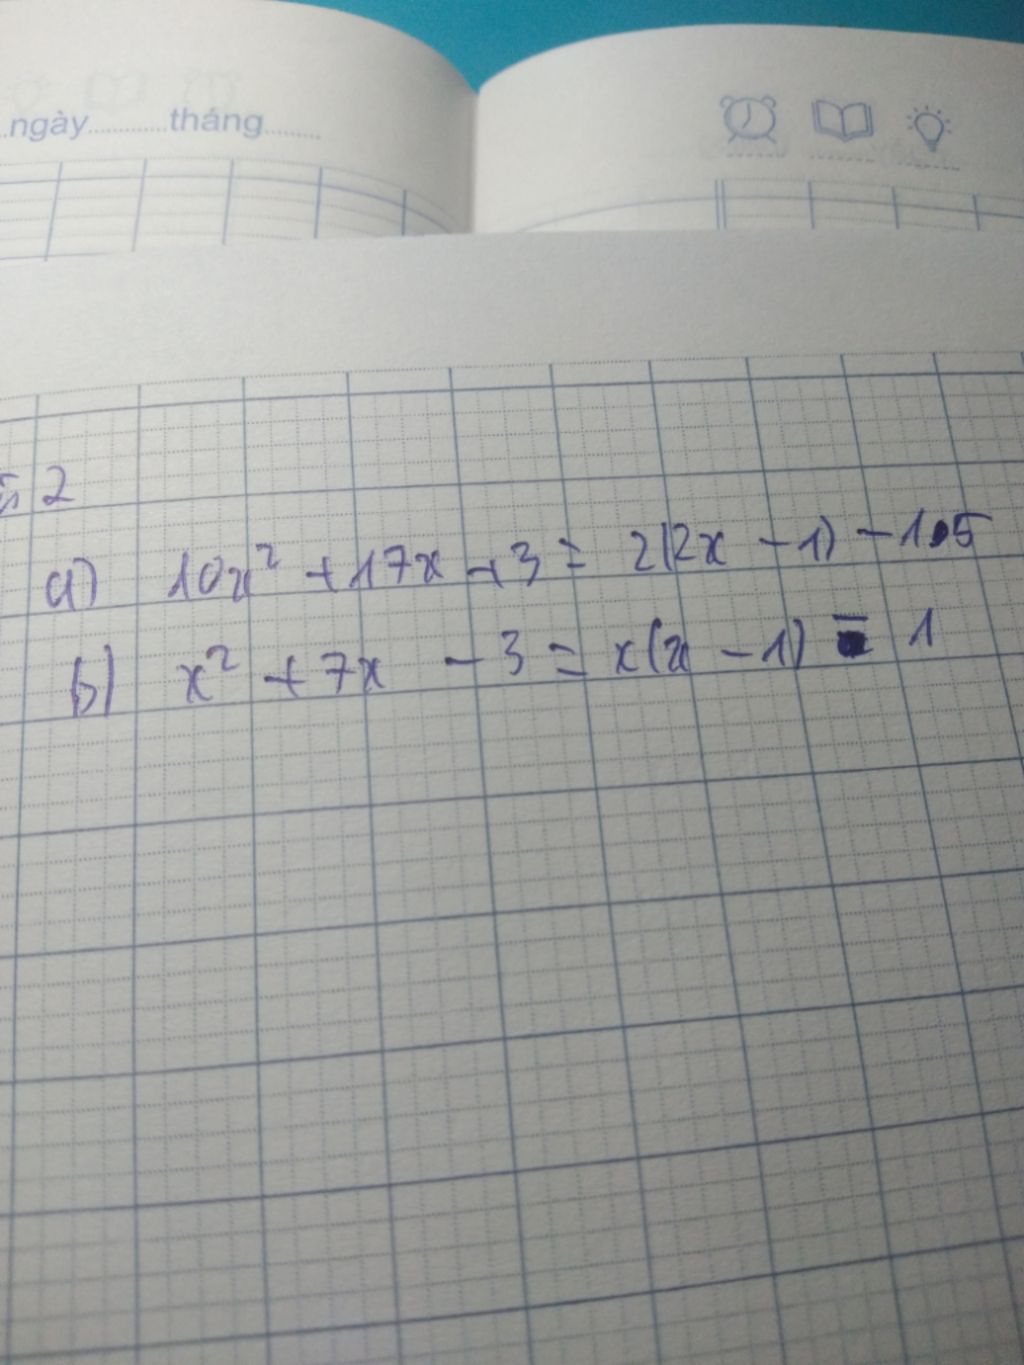 ngày............tháng........
2
a) 10x² + 17x + 3 = 2(2x - 1) - 1.5
b) x² + 7x - 3 = x(x - 1) - 1